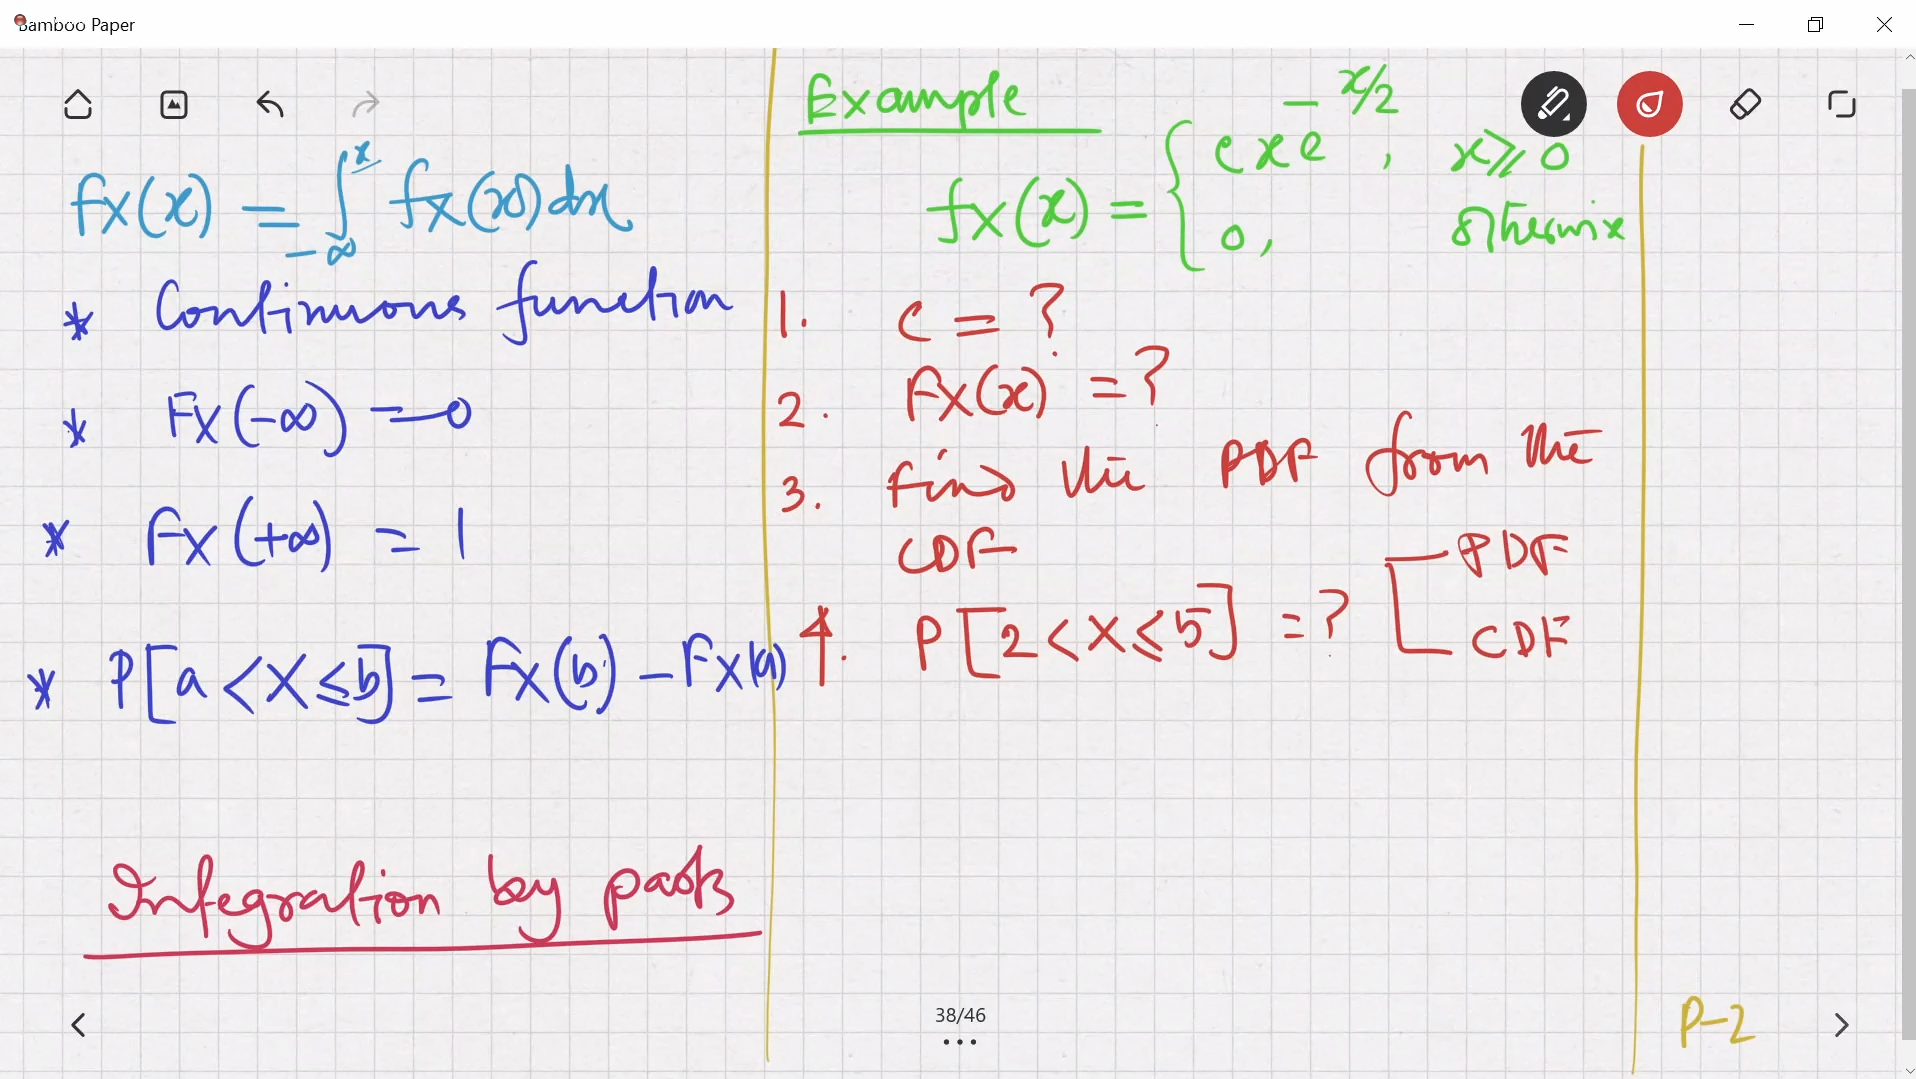 Bamboo Paper
FX(x) = ∫_{-∞}^{x} fX(x) dx
* Continuous function
* FX(-∞) = 0
* FX(+∞) = 1
* P[a < X ≤ b] = FX(b) - FX(a)
Integration by parts
Example
fX(x) = { c x e^{-x/2}, x ≥ 0
0, otherwise
1. c = ?
2. FX(x) = ?
3. Find the PDF from the
CDF
4. P[2 < X ≤ 5] = ? [ PDF
CDF
38/46
P-2